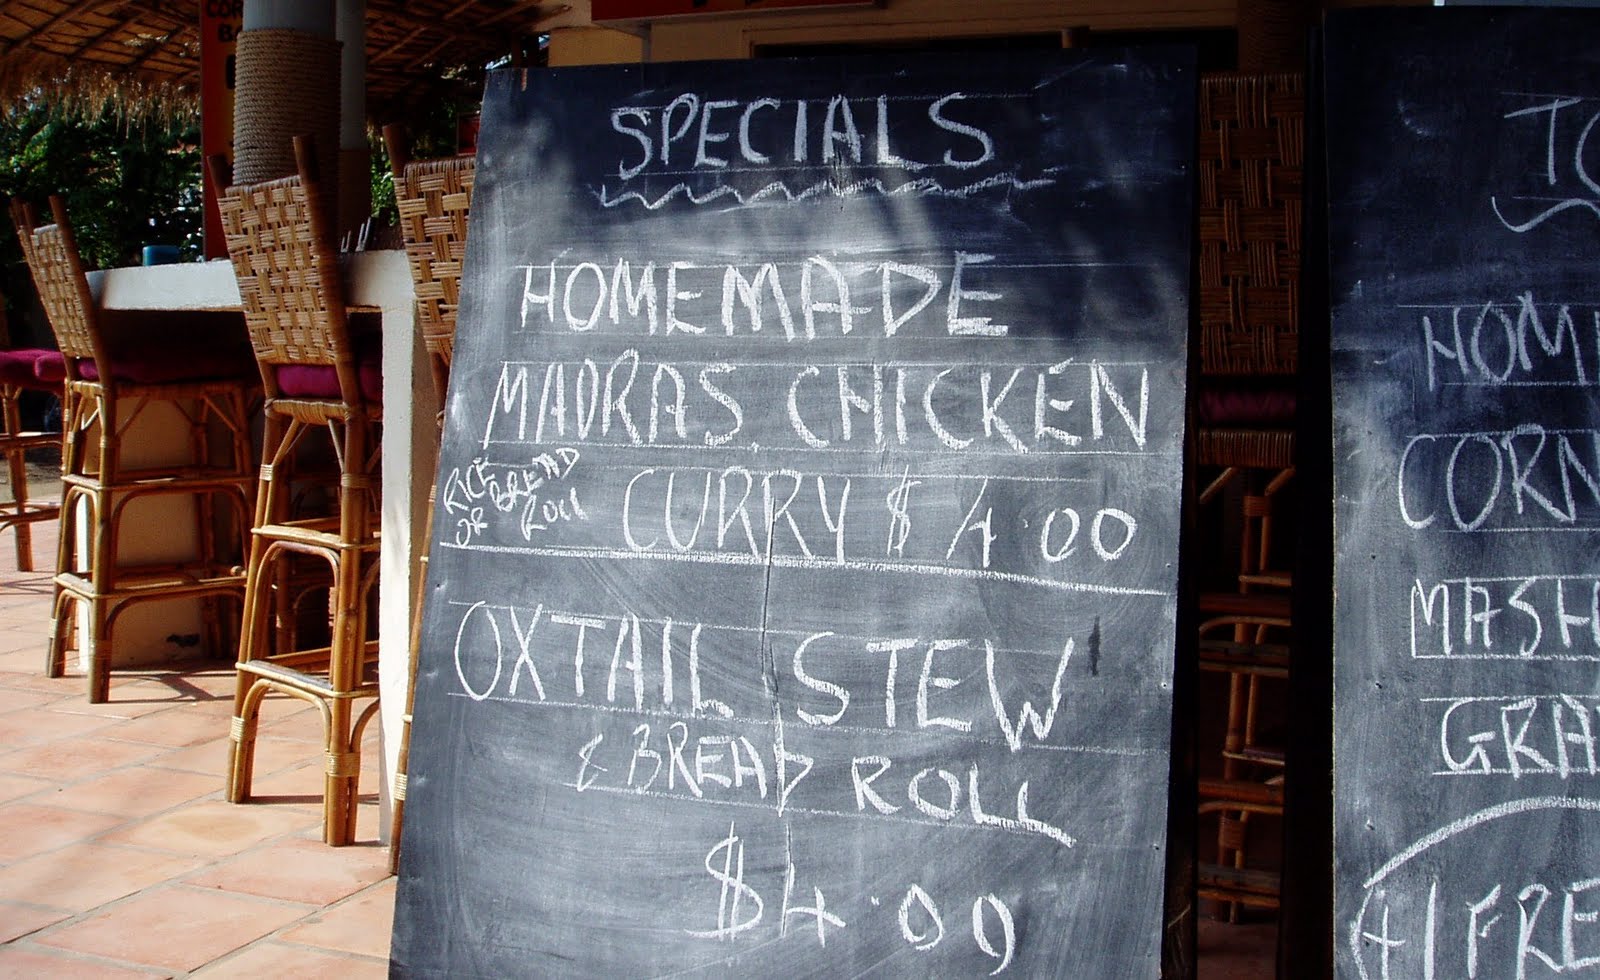 SPECIALS
HOMEMADE
MADRAS CHICKEN
RICE
OR
BREAD
ROLL
CURRY $4.00
OXTAIL STEW
& BREAD ROLL
$4.00
TO
HOM
CORN
MASH
GRA
+1 FRE
COR
BA